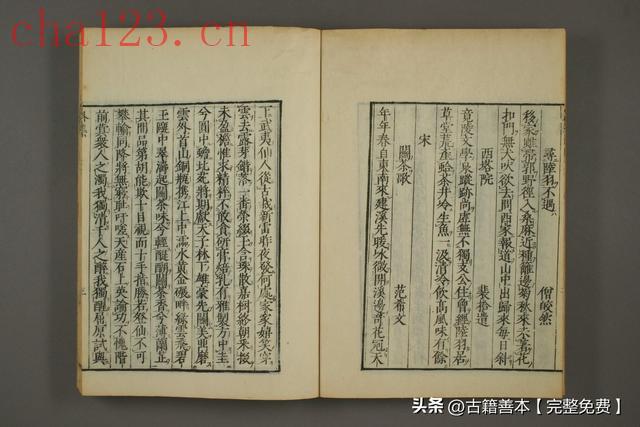 尋陸羽不遇 僧皎然
移家雖帶郭野徑入桑麻近種籬邊菊秋來未著花
扣門無犬吠欲去問西家報道山中出歸來每日斜
西塔院 裴拾遺
竟陵文學泉蹤跡尚虛無不獨支公住曾經陸羽居
草堂荒產蛤茶井冷生魚一汲清冷飲高風味有餘
宋
鬬茶歌 范希文
年年春自東南來建溪先暖冰微開溪邊奇花冠天
下武夷仙人從古栽新雷昨夜發何處家家妍笑穿
雲去露芽錯落一番榮綴玉含珠散嘉樹終朝采掇
未盈襜惟求精粹不敢貪研膏焙乳有雅製方中圭
兮圓中蟾北苑將期獻天子林下雄豪先鬬美鼎磨
雲外首山銅瓶攜江上中濡水黃金碾畔綠雲飛碧
玉甌中翠濤起鬬茶味兮輕醍醐鬬茶香兮薄蘭芷
其間品第胡能欺十目視而十手指勝若登仙不可
攀輸同降將無窮恥吁嗟天產石上英論功不愧階
前蓂衆人之濁我獨清千人之醉我獨醒屈原試與
cha123.cn
头条 @古籍善本【完整免费】